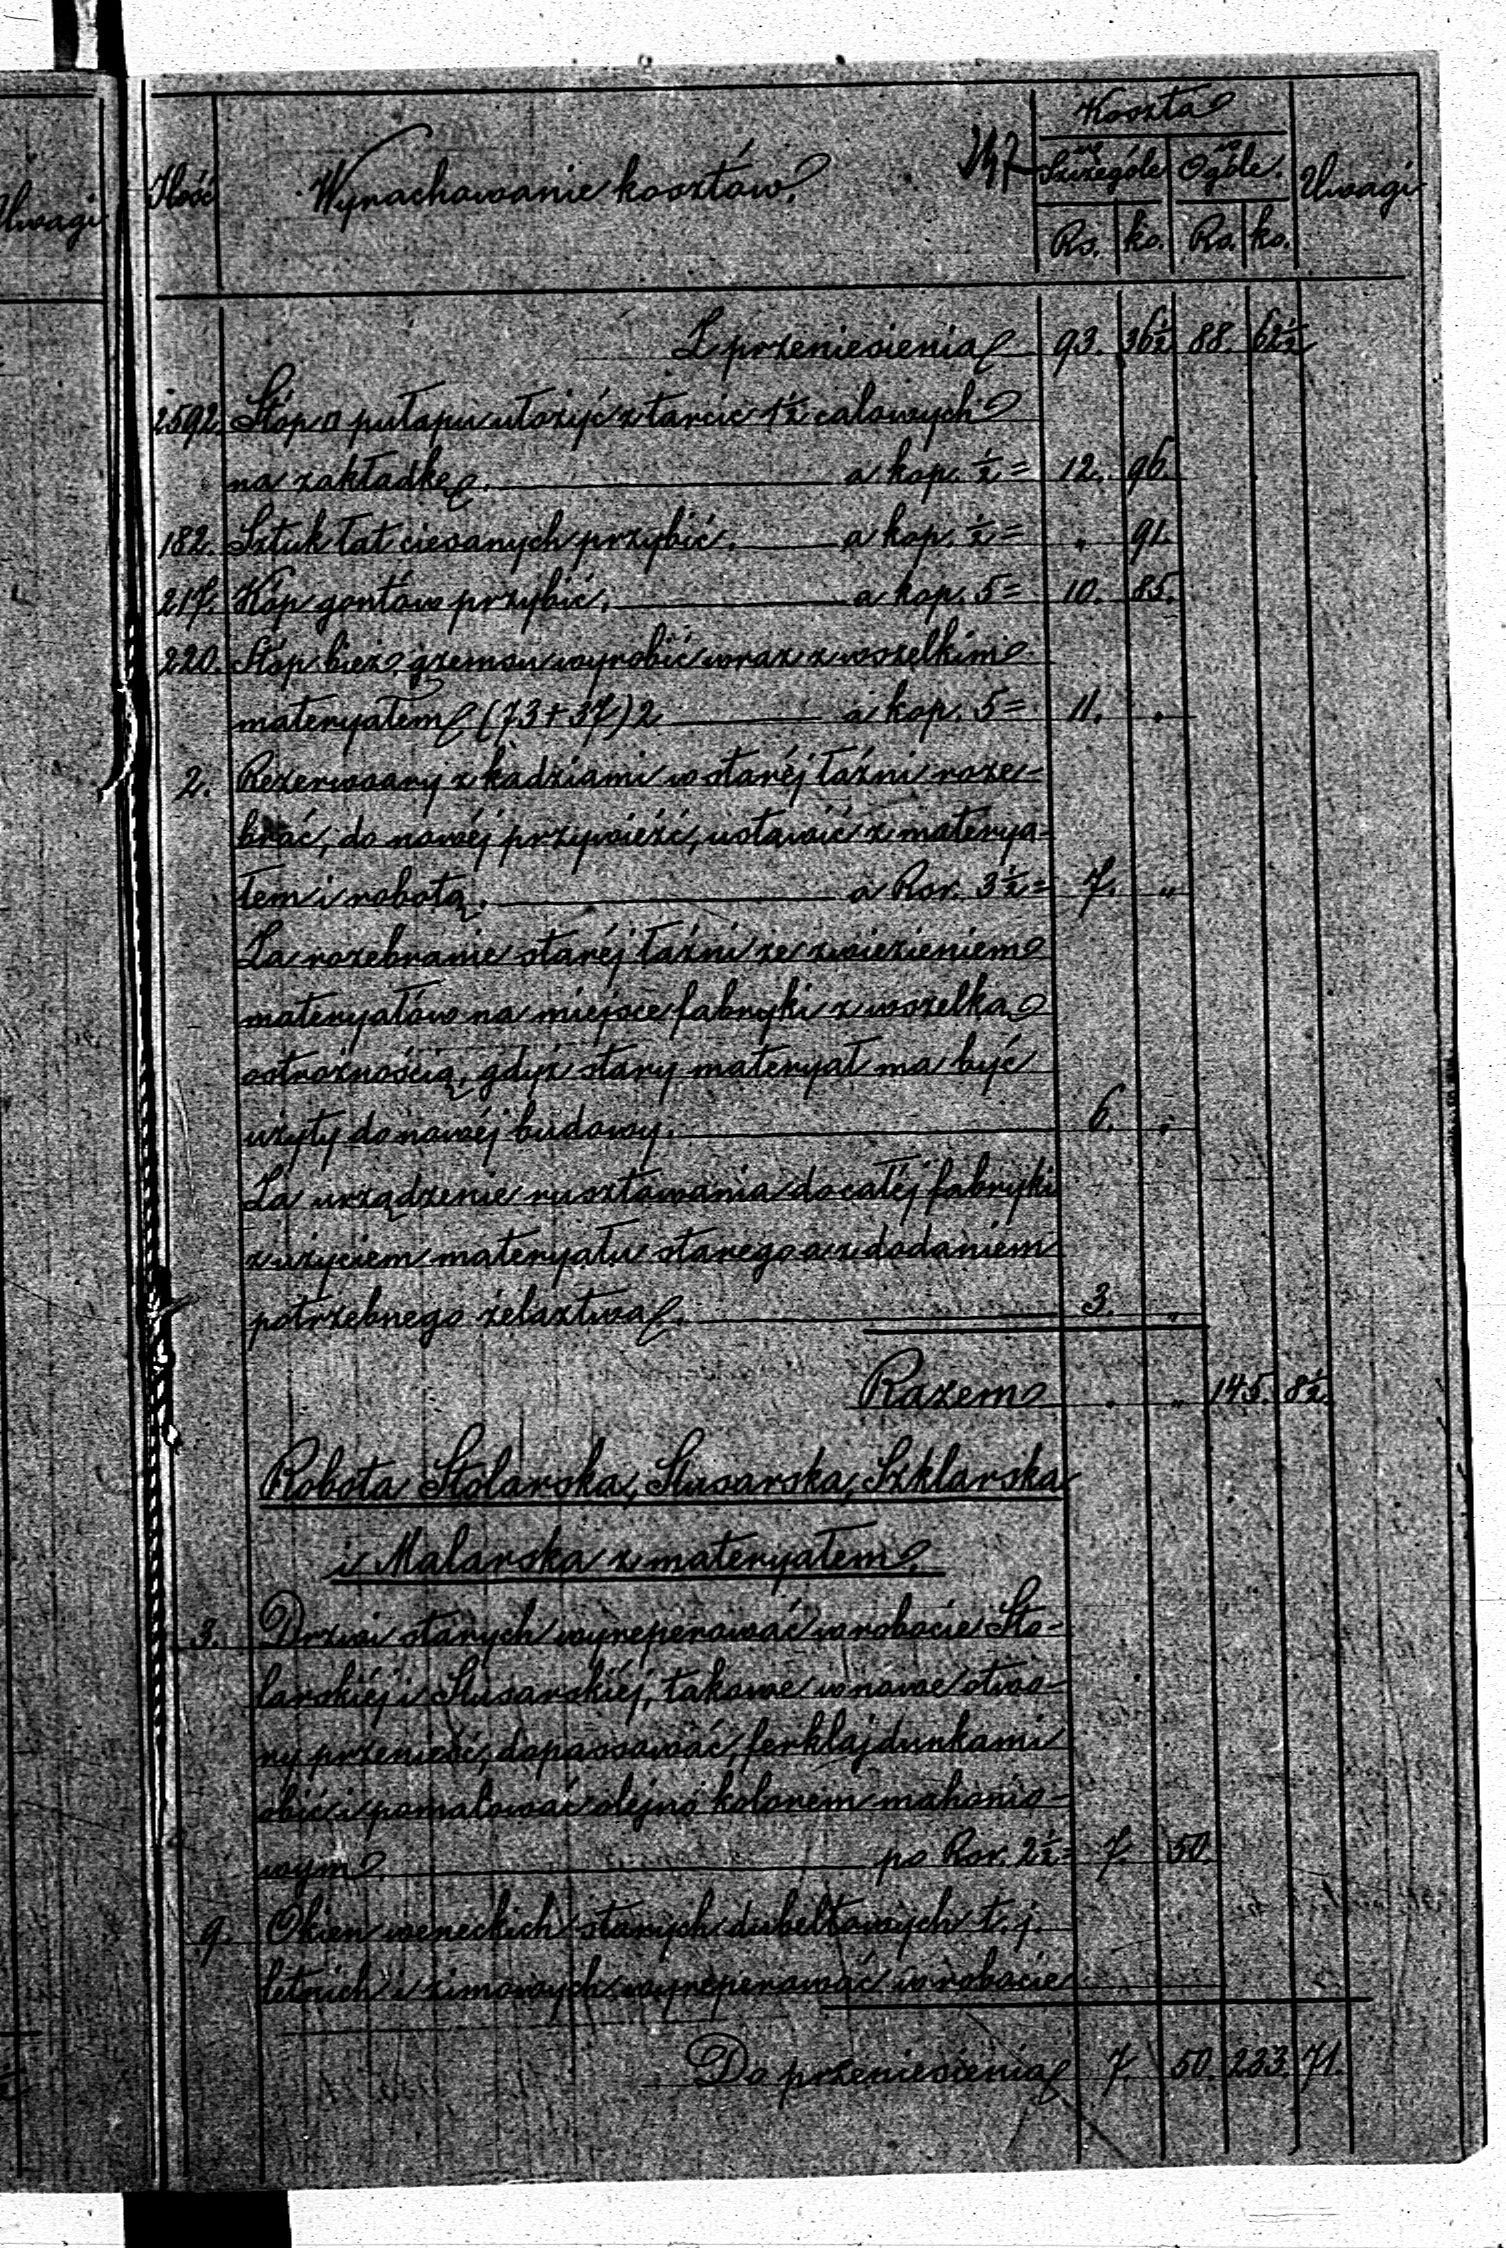 Koszta
147
Ilość Wyrachowanie kosztów. we Szczególe w Ogóle. Uwagi
Uwagi
Rs. ko. Rs. ko.
Z przeniesienia 93. 36½ 88. 62½
2592. Stóp □ pułapu ułożyć z tarcic 1½ calowych
na zakładkę. a kop. ½ = 12. 96.
182. Sztuk łat ciesanych przybić. a kop. ½ = „ 91.
217. Kóp gontów przybić. a kop. 5 = 10. 85.
220. Stóp bież. gzemsu wyrobić wraz z wszelkim
materyałem (73+37)2 a kop. 5 = 11. „
2. Rezerwoary z kadziami w staréj łaźni roze-
brać, do nowéj przywieźć, ustawić z materya-
łem i robotą. a Rsr. 3½ = 7. „
Za rozebranie staréj łaźni ze zwiezieniem
materyałów na miejsce fabryki z wszelką
ostrożnością, gdyż stary materyał ma być
użyty do nowéj budowy. 6. „
Za urządzenie rusztowania do całéj fabryki
z użyciem materyału starego a z dodaniem
potrzebnego żelaztwa. 3. „
Razem „ „ 145. 8½.
Robota Stolarska, Slusarska, Szklarska
i Malarska z materyałem.
3. Drzwi starych wyreperować w robocie Sto-
larskiéj i Slusarskiéj, takowe w nowe otwo-
ry przenieść, dopassować, ferklajdunkami
obić i pomalować olejno kolorem mahonio-
wym. po Rsr. 2½ = 7. 50.
9. Okien weneckich starych dubeltowych t. j.
letnich i zimowych wyreperować w robocie
Do przeniesienia 7. 50. 233. 71.